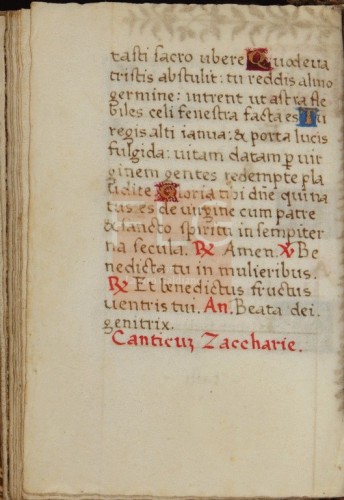 tasti sacro ubere Quod eva
tristis abstulit: tu reddis almo
germine: intrent ut astra fle
biles celi fenestra facta es Tu
regis alti ianua: & porta lucis
fulgida: vitam datam p vir
ginem gentes redempte pla
udite Gloria tibi dñe qui na
tus es de virgine cum patre
& sancto spiritu in sempiter
na secula. ℟ Amen. ℣ Be
nedicta tu in mulieribus.
℟ Et benedictus fructus
ventris tui. An. Beata dei.
genitrix.
Canticuz Zaccharie.